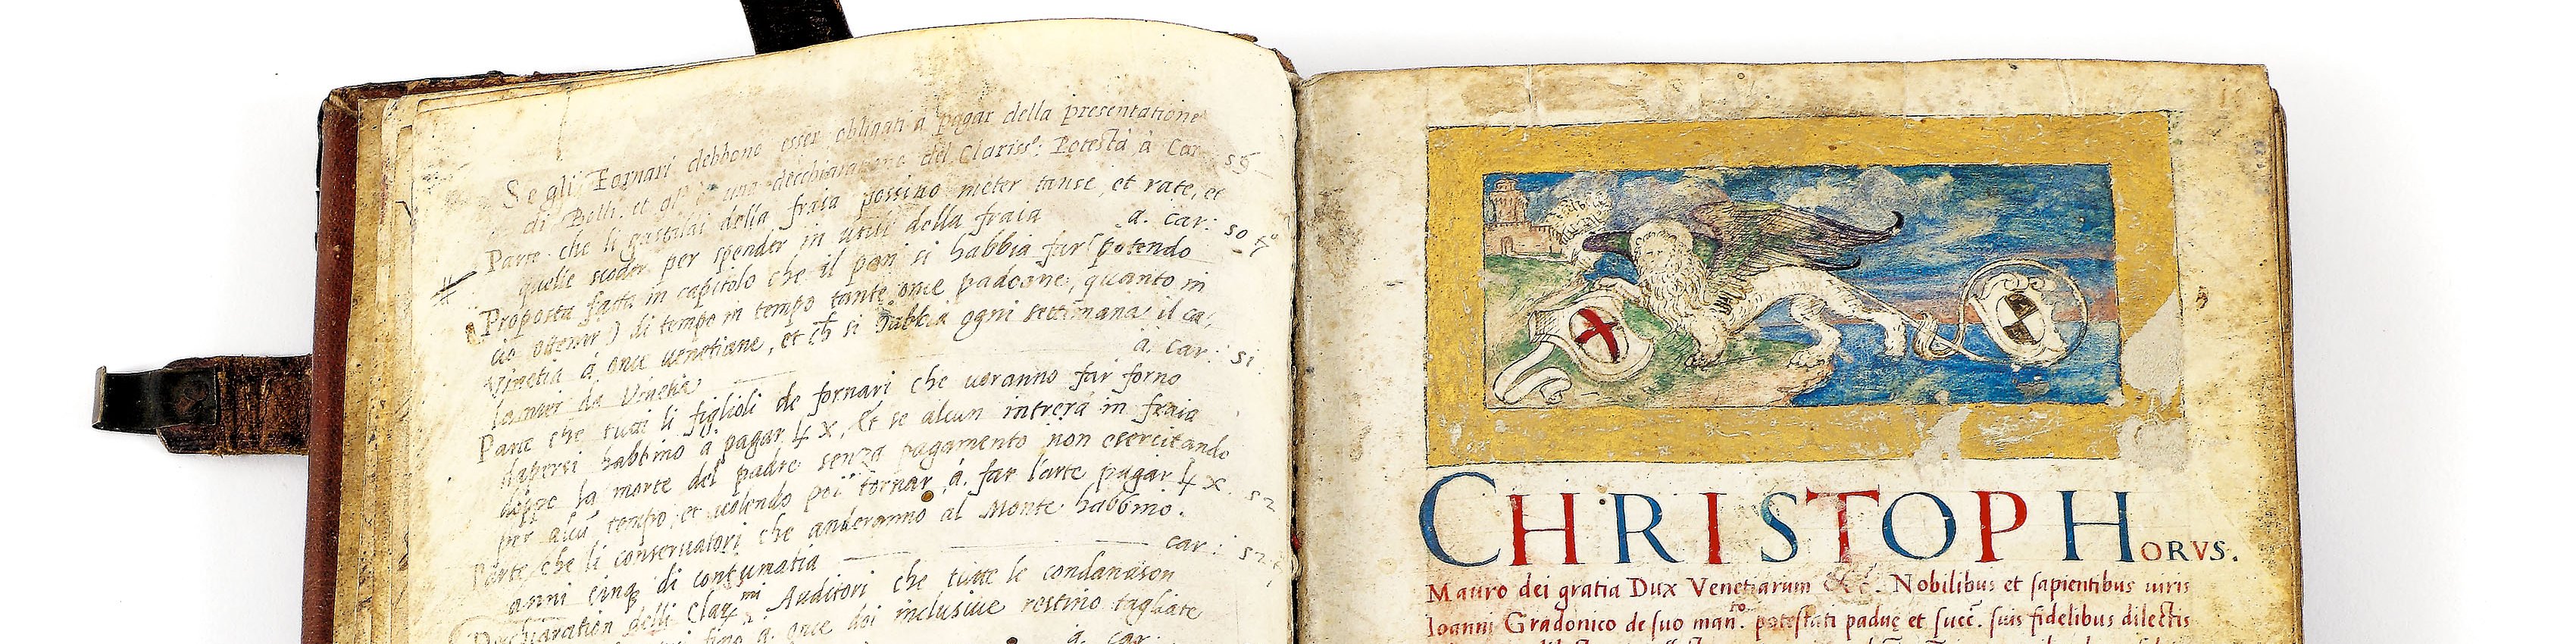 Se gli Fornari debbono esser obligati à pagar della presentatione
di Belli. et gl' è una decchiaratione del Clarissᵒ: Potestà à Car 59
Parte che li gastaldi della fraia possino meter tanse, et rate, et
quelle scoder per spender in utili della fraia a. car: 50
Proposta fatta in capitolo che il pan si habbia far (potendo
cio ottenir) di tempo in tempo tante onie padoane, quanto in
Vinetia à once venetiane, et ch si habbia ogni settimana il ca,
lamier da Venetia a. car: 51
Parte che tutti li figlioli de fornari che voranno far forno
dapersi habbino à pagar ₶ X, Et se alcun intrerà in fraia
doppo la morte del padre senza pagamento non esercitando
per alcũ tempo, et volendo poi tornar a. far l'arte pagar ₶ X. 52
Parte che li conservatori che anderanno al Monte habbino.
anni cinq di contumatia car: 52
Decchiaration delli Clarᵐⁱ Auditori che tutte le condanason
fino a. once doi inclusive restino tagliate
a. car.
CHRISTOPHORVS.
Mauro dei gratia Dux Venetiarum &c. Nobilibus et sapientibus viris
Ioanni Gradonico de suo man.ᵗᵒ potestati padue et succ̃. suis fidelibus dilectis